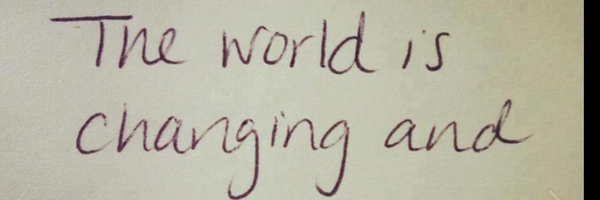 The world is
changing and